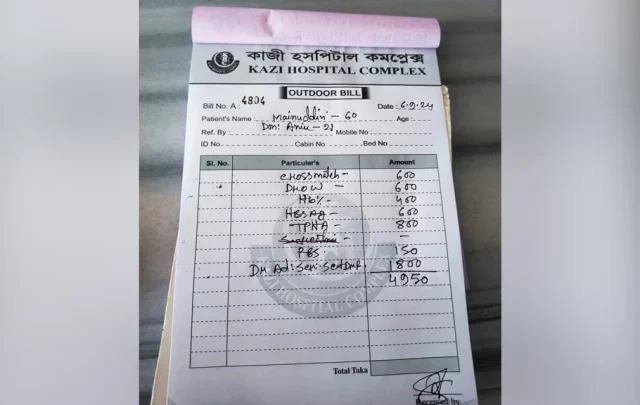 কাজী হসপিটাল কমপ্লেক্স
KAZI HOSPITAL COMPLEX
OUTDOOR BILL
Bill No. A : 4804 Date : 6.9.24
Patient's Name : Mainuddin - 60 Age :
Ref. By Don: - 21 Mobile No :
ID No. Cabin No Bed No
Sl. No. Particular's Amount
Crossmatch - 600
- 600
Hb% - 400
HBsAg - 600
TPHA - 800
-
PBS 150
1800
4950
Total Taka
Received by